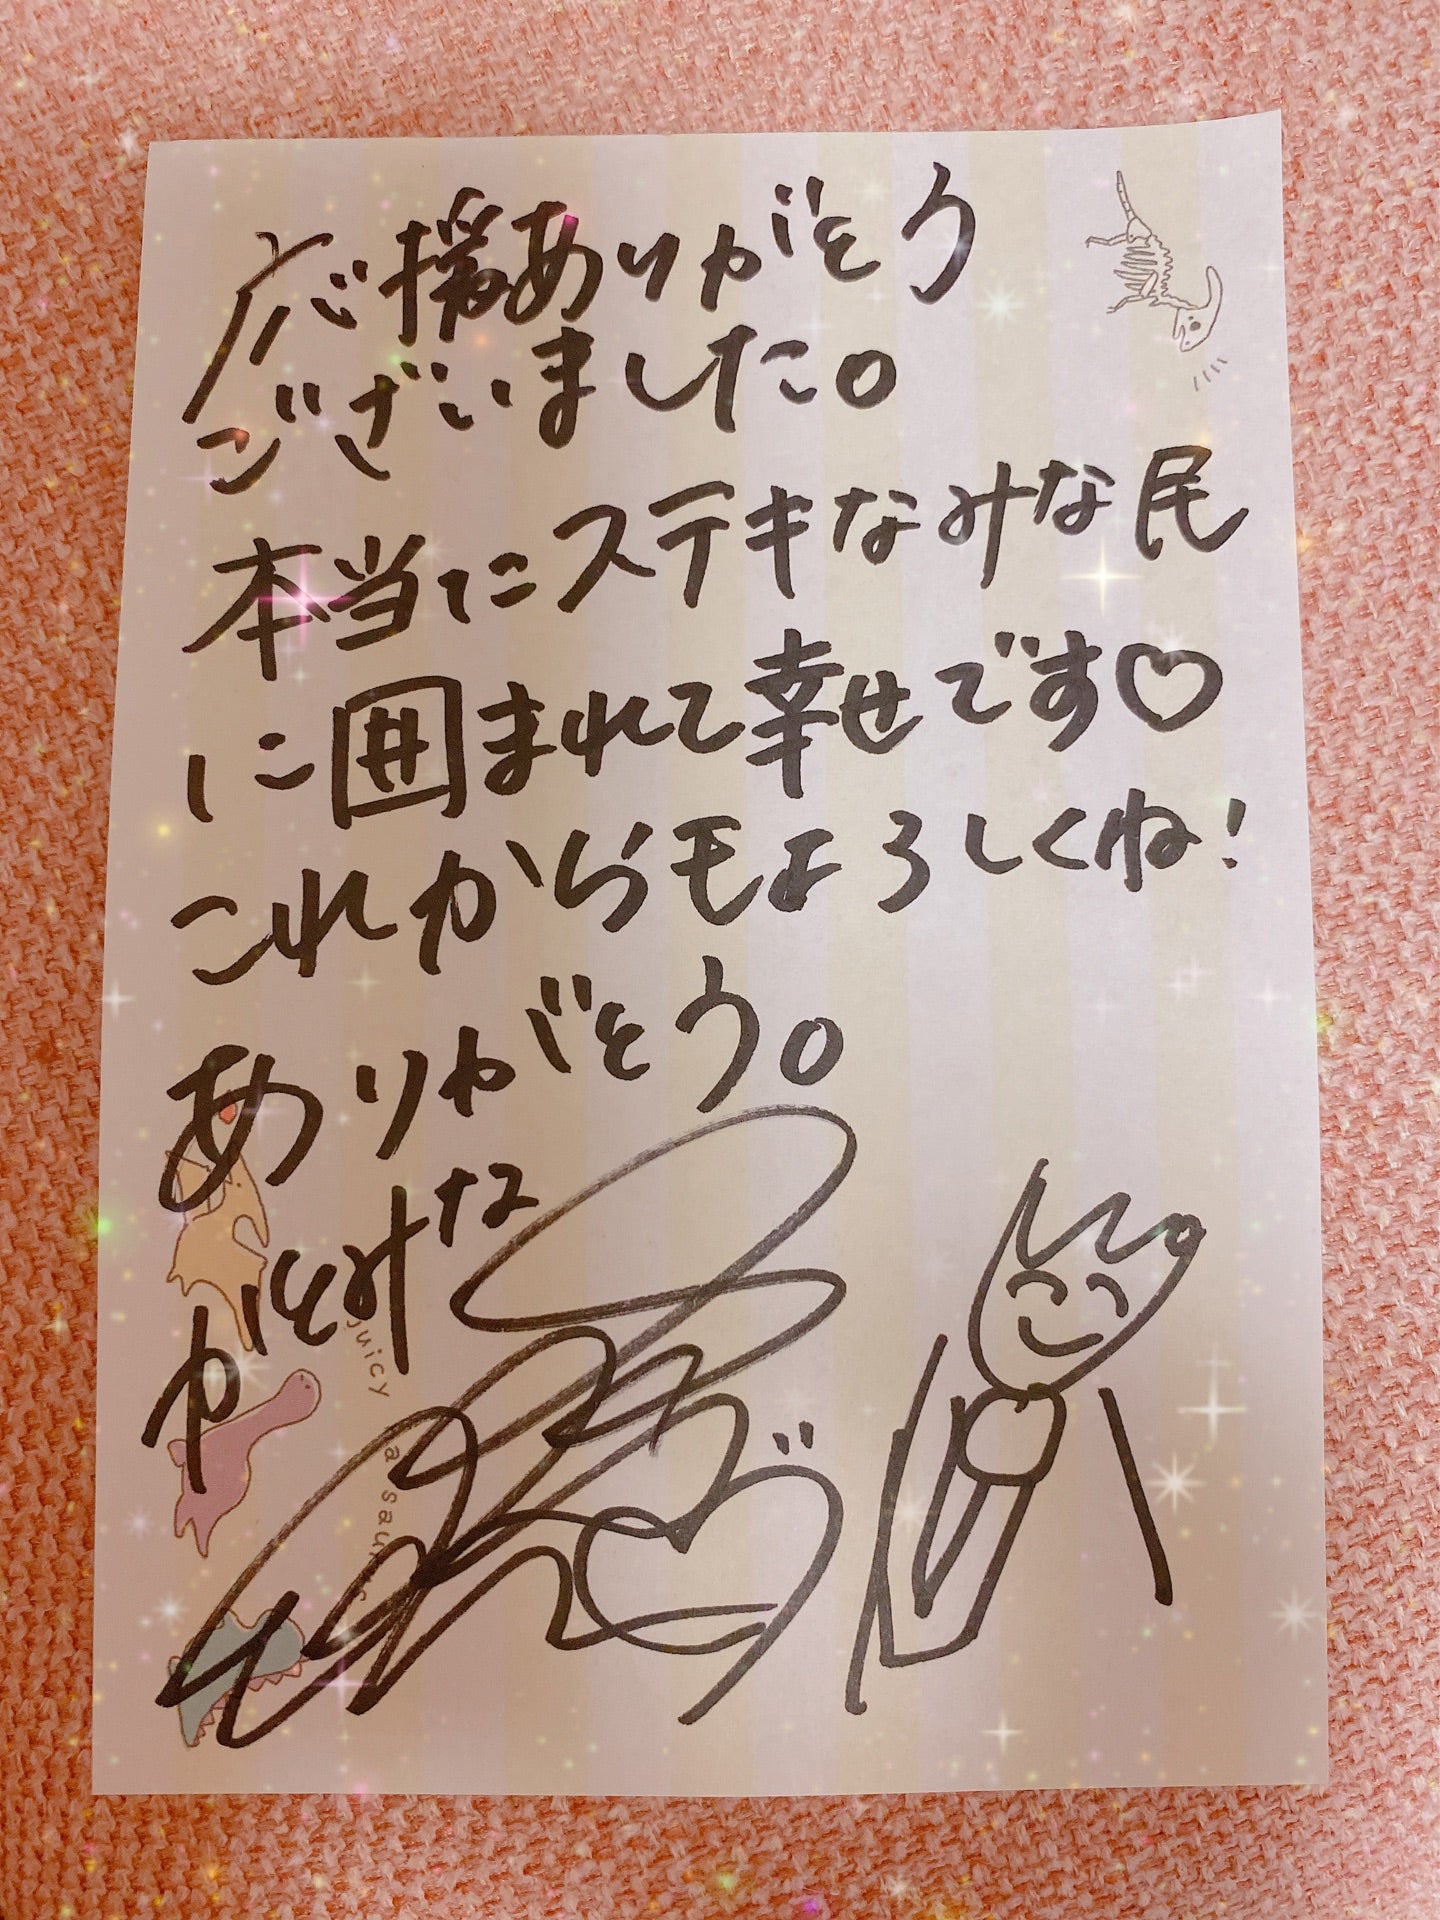 応援ありがとう
ございました。
本当にステキなみな民
に囲まれて幸せです♡
これからもよろしくね!
ありがとう。
がそみな
juicy
a ssaurus